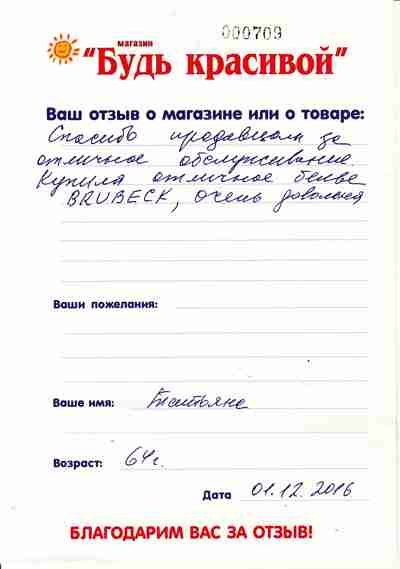 000709
магазин
"Будь красивой"
Ваш отзыв о магазине или о товаре:
Спасибо продавцам за
отличное обслуживание.
Купила отличное белье
BRUBECK, очень довольна
Ваши пожелания:
Ваше имя: Татьяна
Возраст: 64г.
Дата 01.12.2016
БЛАГОДАРИМ ВАС ЗА ОТЗЫВ!